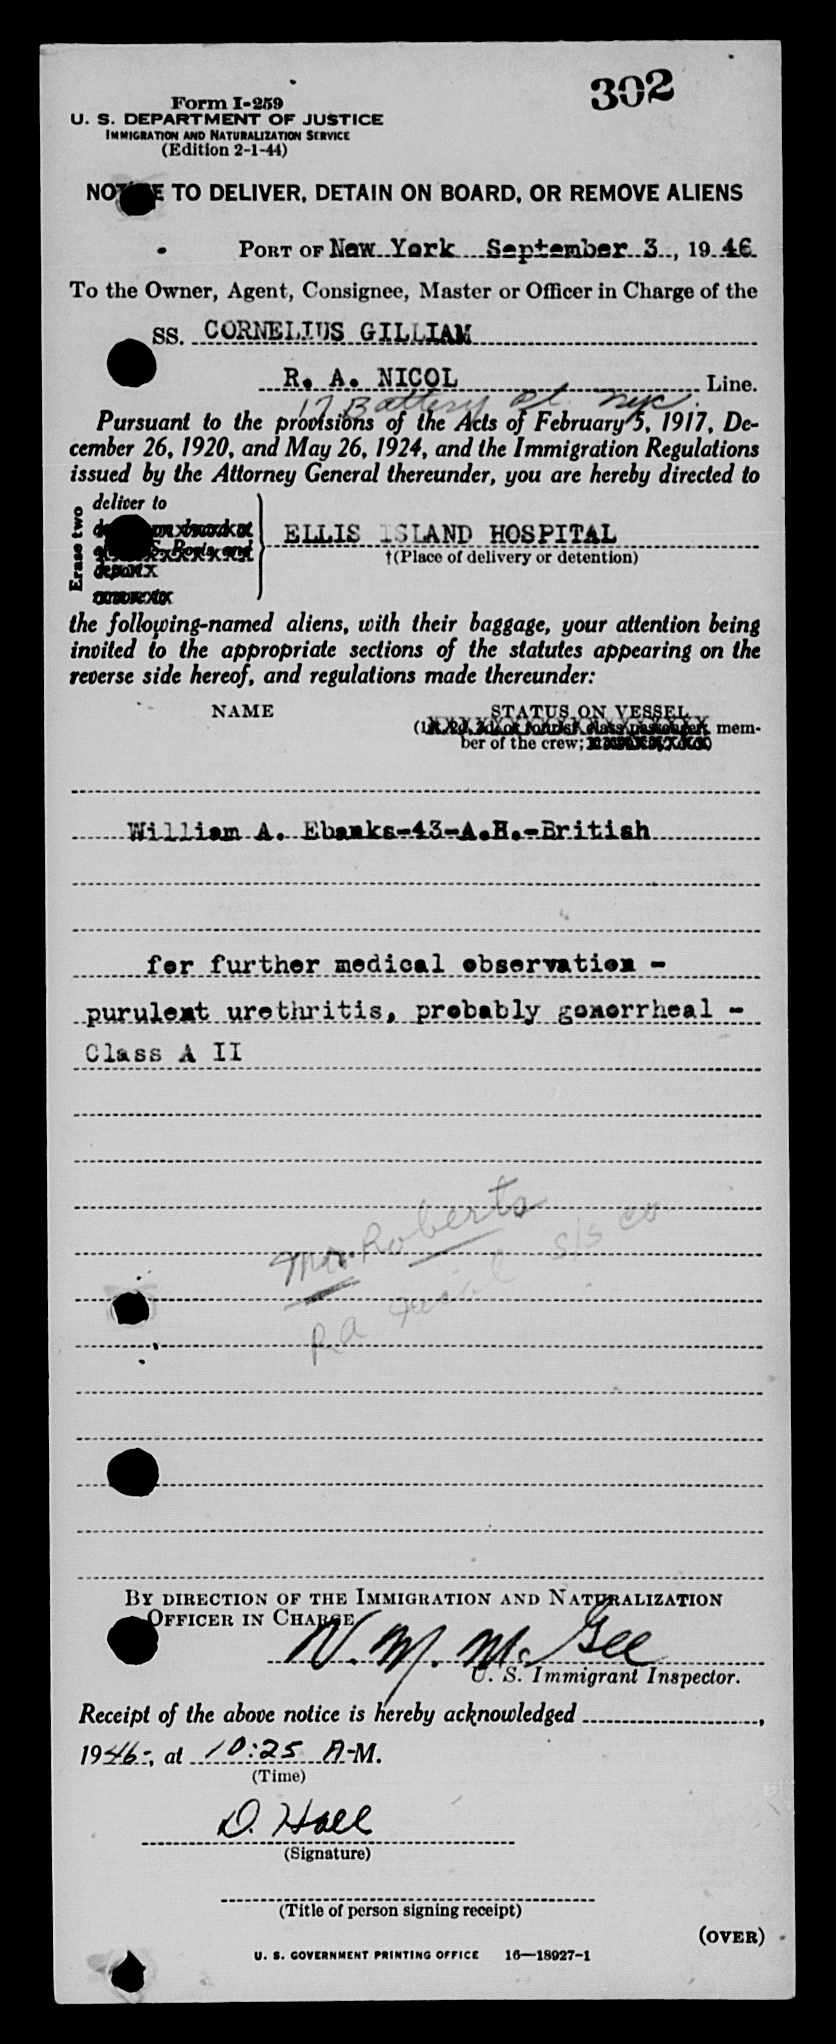 302
Form I-259
U. S. DEPARTMENT OF JUSTICE
IMMIGRATION AND NATURALIZATION SERVICE
(Edition 2-1-44)
NOTICE TO DELIVER, DETAIN ON BOARD, OR REMOVE ALIENS
PORT OF New York September 3, 1946
To the Owner, Agent, Consignee, Master or Officer in Charge of the
SS. CORNELIUS GILLIAM
R. A. NICOL Line.
17 Battery Pl. nyc.
Pursuant to the provisions of the Acts of February 5, 1917, De-
cember 26, 1920, and May 26, 1924, and the Immigration Regulations
issued by the Attorney General thereunder, you are hereby directed to
Erase two
deliver to
on board at
ELLIS ISLAND HOSPITAL
S. Boats and
deport
†(Place of delivery or detention)
remove to
the following-named aliens, with their baggage, your attention being
invited to the appropriate sections of the statutes appearing on the
reverse side hereof, and regulations made thereunder:
NAME
STATUS ON VESSEL
(1st, 2d, 3d, or tourist class passenger, mem-
ber of the crew;
William A. Ebanks-43-A.H.-British
for further medical observation -
purulent urethritis, probably gonorrheal -
Class A II
Mr. Roberts
RA Nicol S/S Co
BY DIRECTION OF THE IMMIGRATION AND NATURALIZATION
OFFICER IN CHARGE
W. M. McGee
U. S. Immigrant Inspector.
Receipt of the above notice is hereby acknowledged ,
1946-, at 10:25 A-M.
(Time)
D. Hall
(Signature)
(Title of person signing receipt)
(OVER)
U. S. GOVERNMENT PRINTING OFFICE 16—18927-1